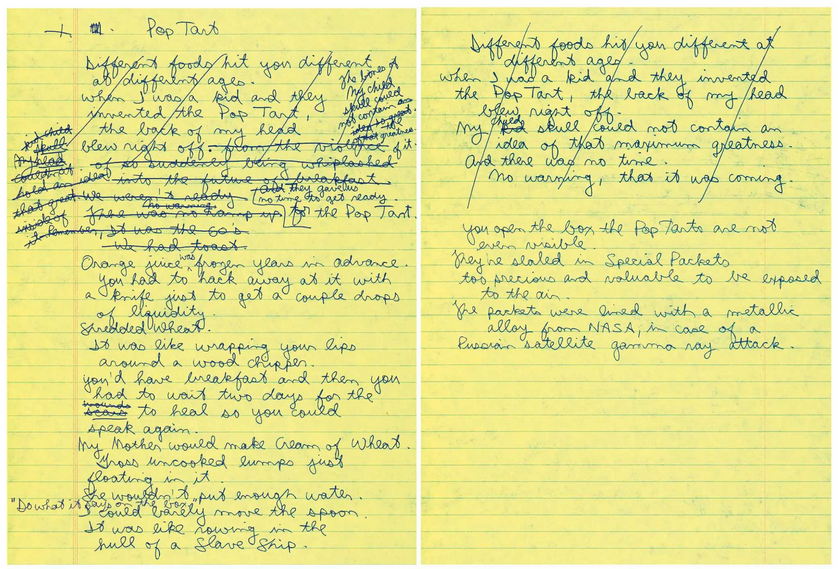 Pop Tart
Different foods hit you different
at different ages.
when I was a kid and they
invented the Pop Tart,
the back of my head
blew right off. from the violence of it.
of so suddenly being whiplashed
into the future of breakfast.
We weren't ready
And they gave us
no time to get ready.
no warning
There was no ramp up to the Pop Tart.
It was the 60's
We had toast.
The bones of
My child
skull could
not contain an
idea so great
My head
couldn't
hold an idea
that great
inside of
it
Orange juice was frozen years in advance.
You had to hack away at it with
a knife just to get a couple drops
of liquidity.
Shredded Wheat.
It was like wrapping your lips
around a wood chipper.
you'd have breakfast and then you
had to wait two days for the
wounds
scars to heal so you could
speak again.
My Mother would make Cream of Wheat.
Gross uncooked lumps just
floating in it.
She wouldn't put enough water.
"Do what it says on the box"
I could barely move the spoon.
It was like rowing in the
hull of a Slave Ship.
Different foods hit you different at
different ages.
when I was a kid and they invented
the Pop Tart, the back of my head
blew right off.
My kid child skull could not contain an
idea of that maximum greatness.
And there was no time.
No warning, that it was coming.
you open the box the Pop Tarts are not
even visible.
They're sealed in Special Packets
too precious and valuable to be exposed
to the air.
The packets were lined with a metallic
alloy from NASA, in case of a
Russian satellite gamma ray attack.